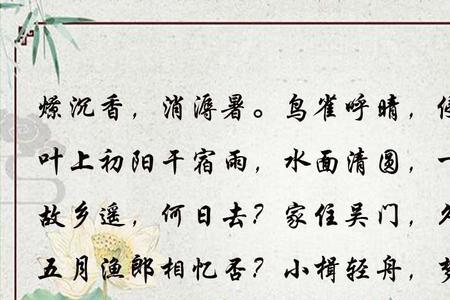 燎沉香，消溽暑。鸟雀呼晴，
叶上初阳干宿雨，水面清圆，一
故乡遥，何日去？家住吴门，
五月渔郎相忆否？小楫轻舟，